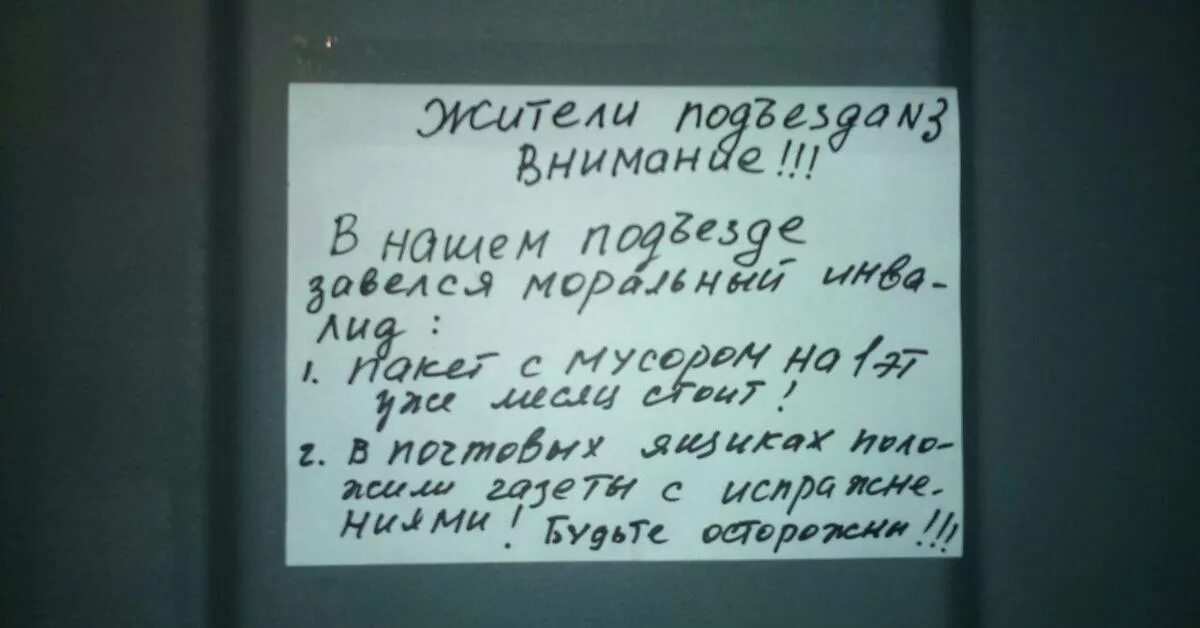 Жители подъезда N3
Внимание!!!
В нашем подъезде
завелся моральный инва-
лид:
1. пакет с мусором на 1 эт
уже месяц стоит!
2. в почтовых ящиках поло-
жили газеты с испражне-
ниями! Будьте осторожны!!!